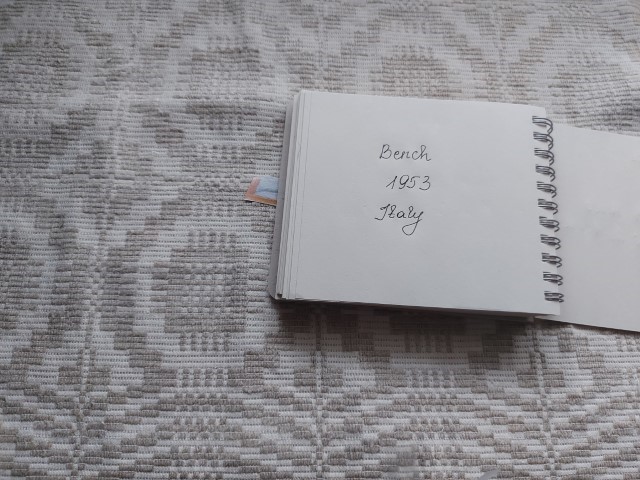 Bench
1953
Italy